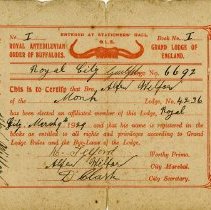 No. I ENTERED AT STATIONERS' HALL Book No. I
G.L.E.
ROYAL ANTEDILUVIAN GRAND LODGE OF
ORDER OF BUFFALOES. ENGLAND.
Royal City No. 6692
This is to Certify that Bro. Alfer Welfar
of the Monk Lodge, No. 4236
has been elected an affiliated member of this Lodge Royal
City, and his name is registered in the
books as entitled to all rights and privileges according to Grand
Lodge Rules and the Bye-Laws of the Lodge.
Worthy Primo.
Alfer Welfar City Marshal.
D Clark City Secretary.